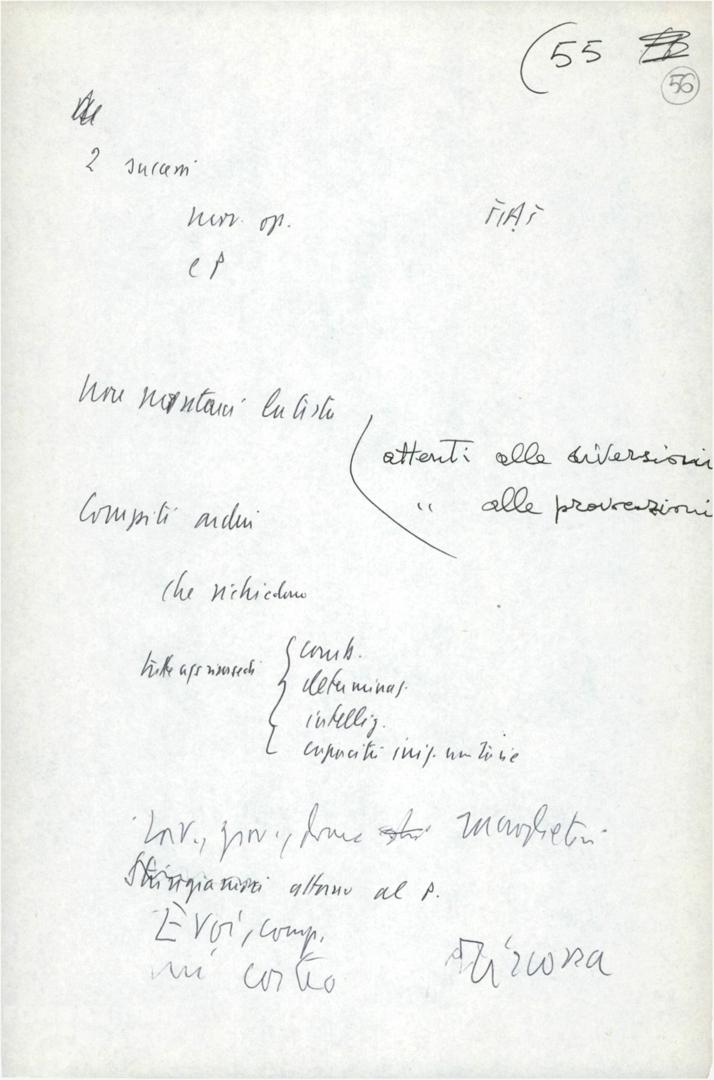 (55
56
2 successi
mov. op.
FIAT
e P
non montarci la testa
attenti alle diversioni
" alle provocazioni
Compiti ardui
che richiedono
comb.
determinaz.
intellig.
capacità iniz. unitarie
Lav., giov., donne
Stringiamoci attorno al P.
E voi, comp.
corteo